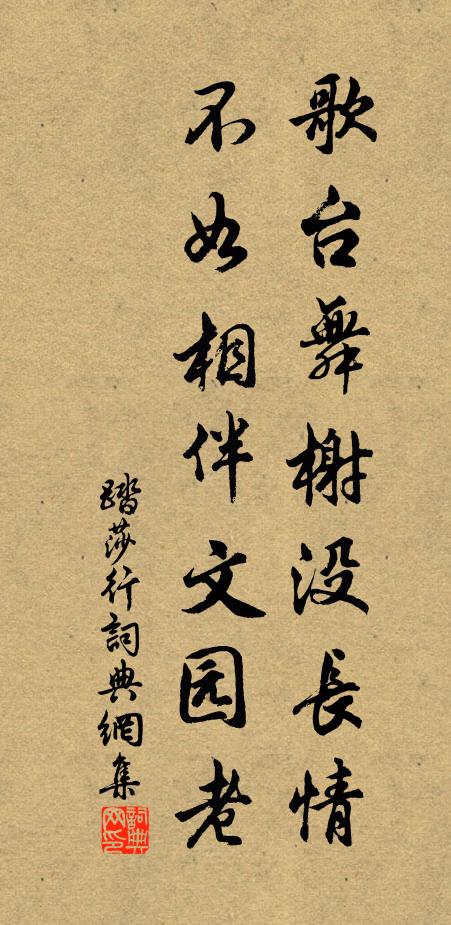 歌台舞榭没長情
不如相伴文园老
踏莎行詞典網集
詞典网印